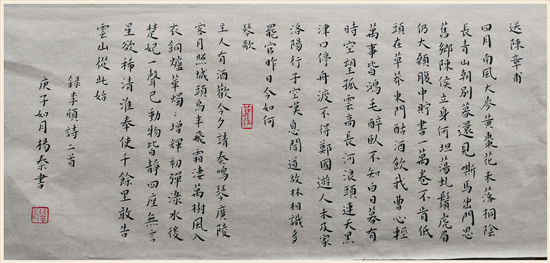 送陳章甫
四月南風大麥黃棗花未落桐陰
長青山朝別暮還見嘶馬出門思
舊鄉陳侯立身何坦蕩虬鬚虎眉
仍大顙腹中貯書一萬卷不肯低
頭在草莽東門酤酒飲我曹心輕
萬事皆鴻毛醉臥不知白日暮有
時空望孤雲高長河浪頭連天黑
津口停舟渡不得鄭國遊人未及家
洛陽行子空嘆息聞道故林相識多
罷官昨日今如何
琴歌
主人有酒歡今夕請奏鳴琴廣陵
客月照城頭烏半飛霜淒萬樹風入
衣銅爐華燭〻增輝初彈淥水後
楚妃一聲已動物皆靜四座無言
星欲稀清淮奉使千餘里敢告
雲山從此始
錄李頎詩二首
庚子如月楊秦書